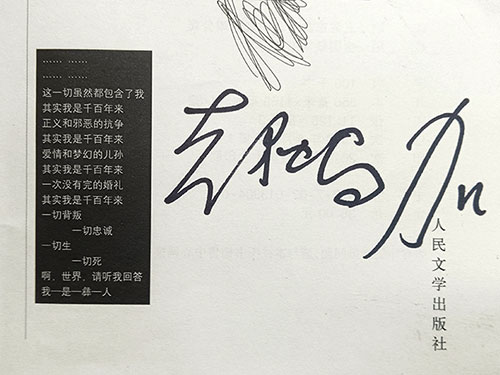 …… ……
…… ……
这一切虽然都包含了我
其实我是千百年来
正义和邪恶的抗争
其实我是千百年来
爱情和梦幻的儿孙
其实我是千百年来
一次没有完的婚礼
其实我是千百年来
一切背叛
一切忠诚
一切生
一切死
啊，世界，请听我回答
我—是—彝—人
吉狄马加
人民文学出版社